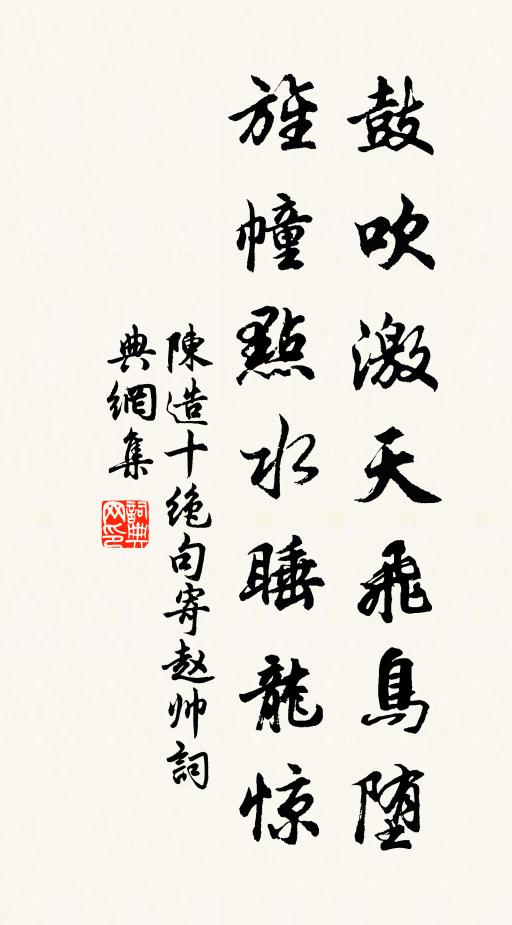 鼓吹激天飛鳥堕
旌幢點水睡龍惊
陳造十绝句寄赵帅詞
典網集
詞典网印